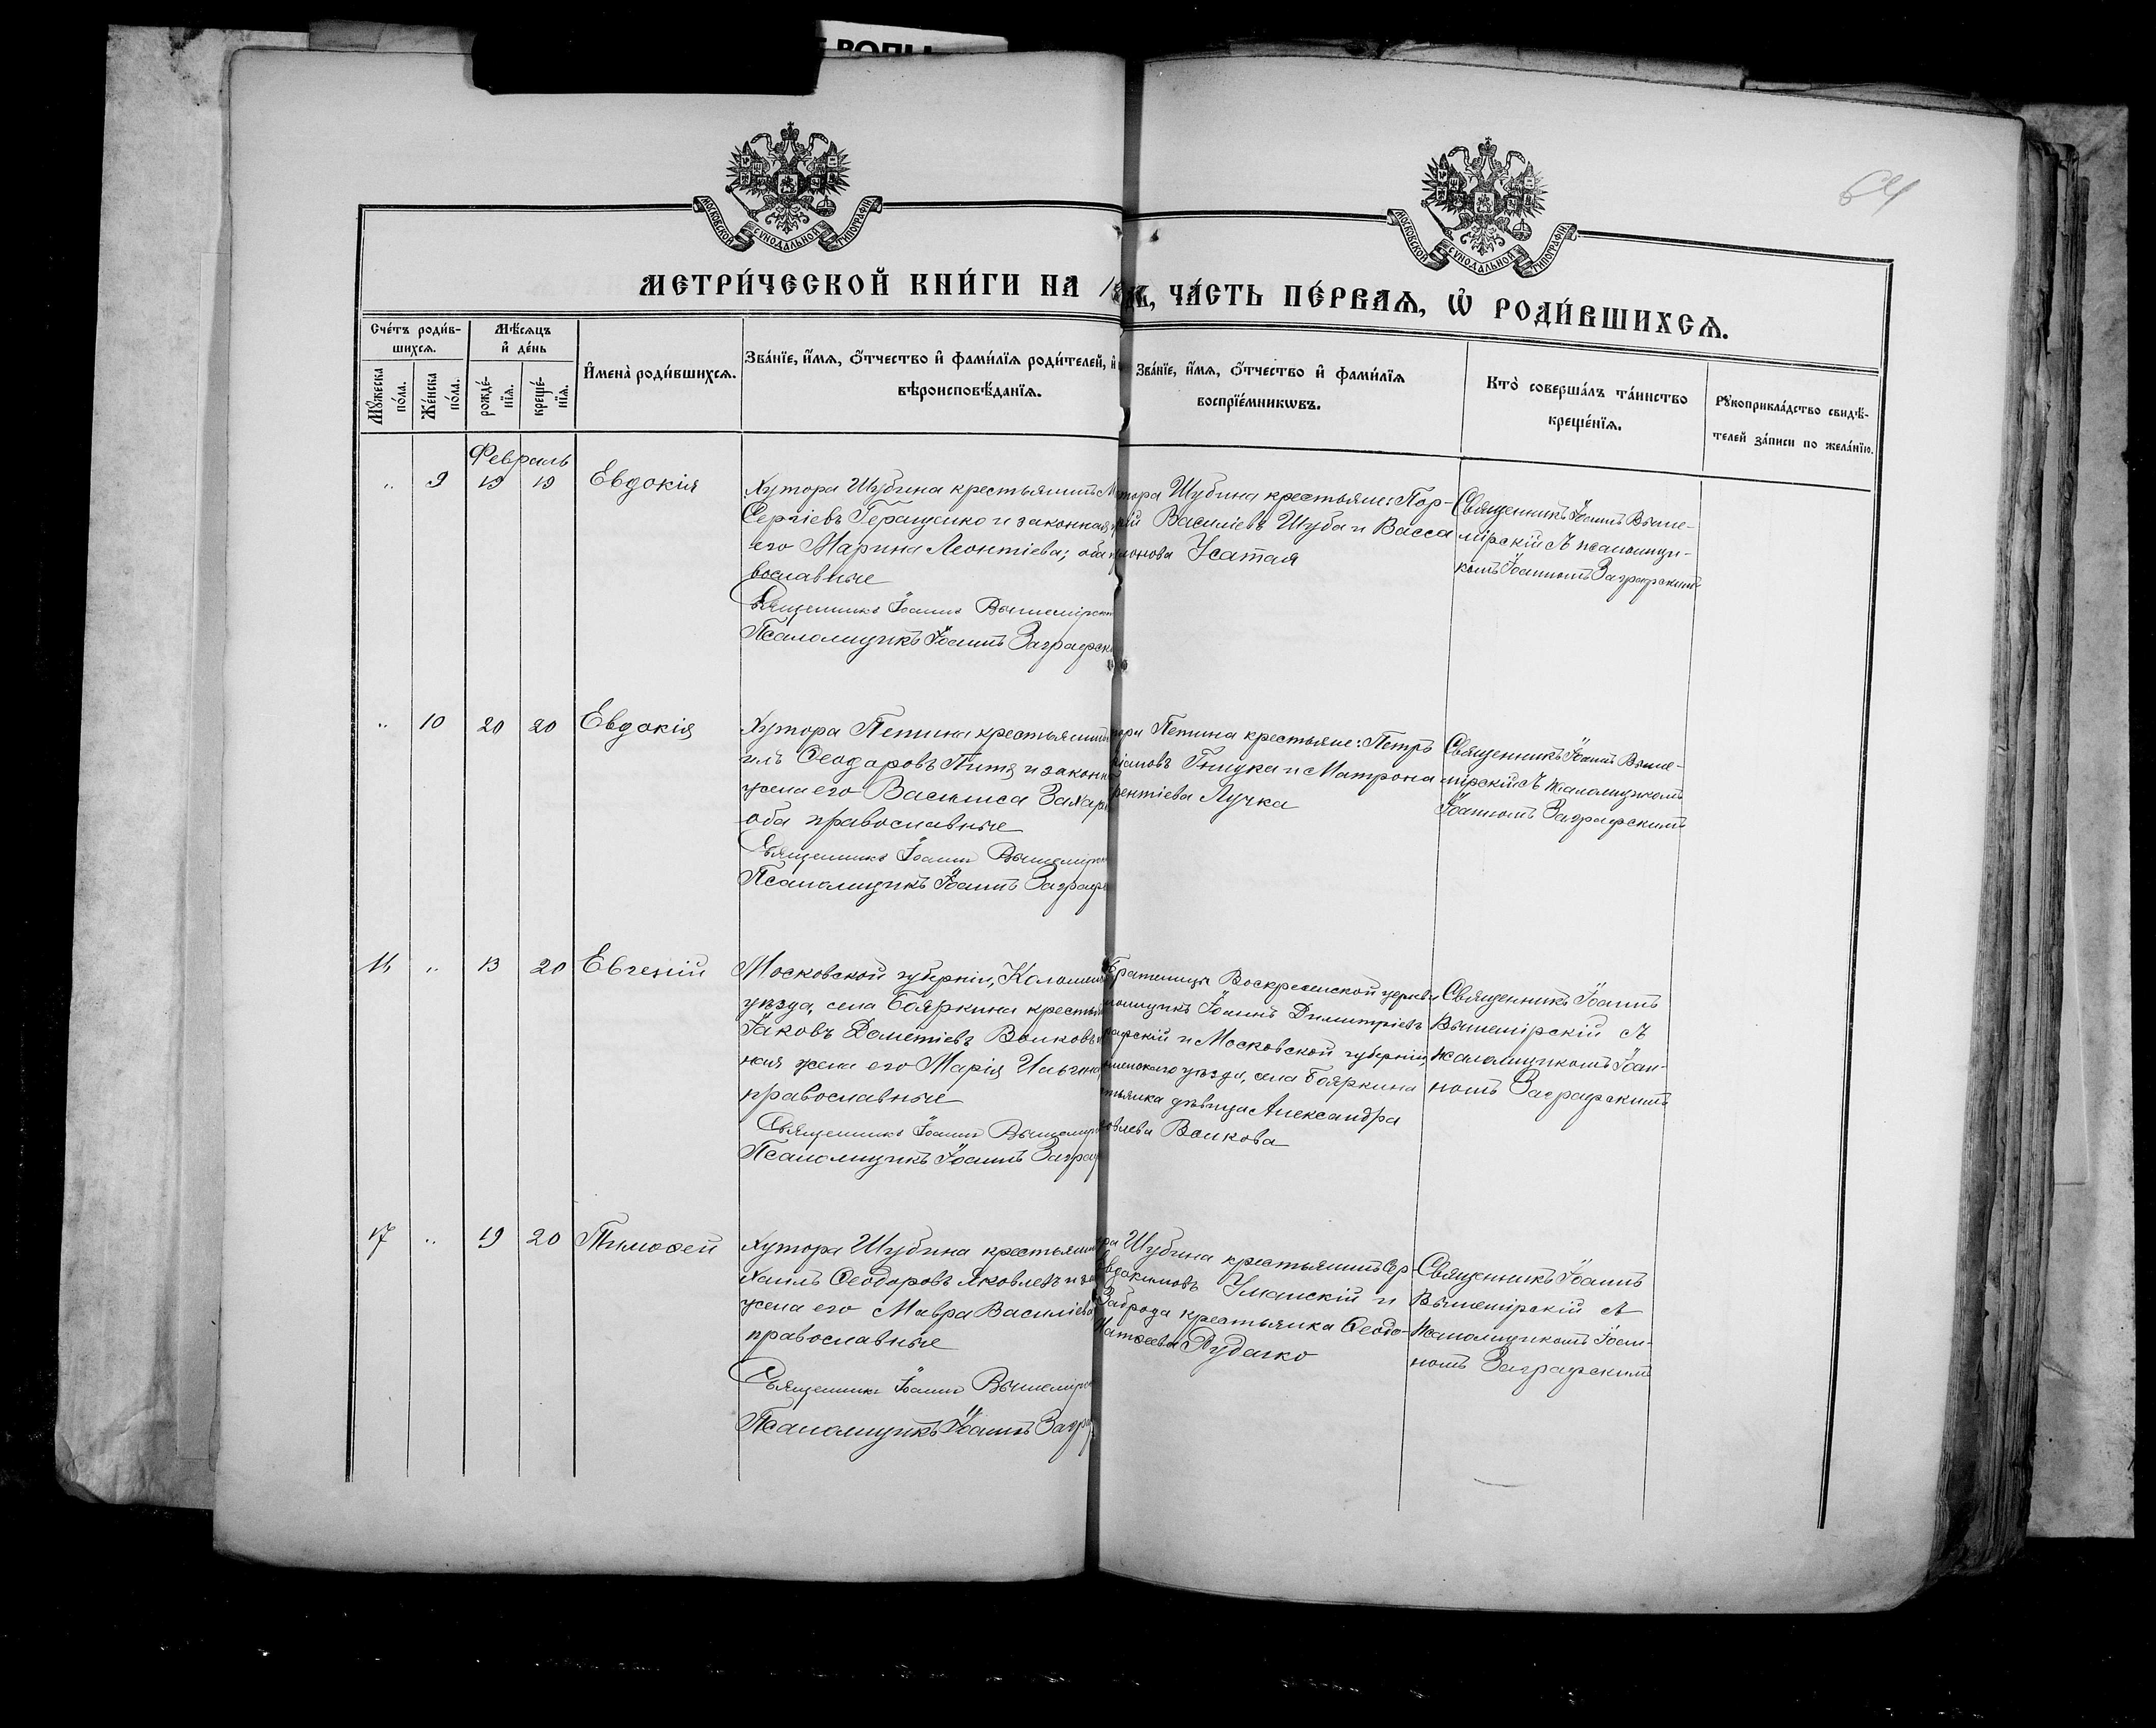 64
МОСКОВСКОЙ СѴНОДАЛЬНОЙ ТИПОГРАФІИ
МОСКОВСКОЙ СѴНОДАЛЬНОЙ ТИПОГРАФІИ
МЕТРИ́ЧЕСКОЙ КНИ́ГИ НА 18
ЧА́СТЬ ПЕ́РВАѦ, Ѡ҆ РОДИ́ВШИХСѦ.
Сче́тъ роди́в-
шихсѧ.
Мꙋ́жеска по́ла.
Же́нска по́ла.
Мѣ́сѧцъ
и҆ де́нь
рожде́-
нїѧ.
креще́-
нїѧ.
И҆мена̀ роди́вшихсѧ.
Зва́нїе, и҆́мѧ, ѻ҆́тчество и҆ фами́лїѧ роди́телей, и҆
вѣроисповѣ́данїѧ.
Зва́нїе, и҆́мѧ, ѻ҆́тчество и҆ фами́лїѧ
воспрїе́мникѡвъ.
Кто̀ соверша́лъ та́инство
креще́нїѧ.
Рꙋкоприкла́дство свидѣ́-
телей за́писи по жела́нїю.
Февраль
" 9 19 19 Евдокія
Хутора Шубина крестьянинъ
Сергіевъ Геращенко и законная
его Марина Леонтіева; оба
вославные
Священникъ Іоаннъ Вышемірск
Псаломщикъ Іоаннъ Заграфск
тора Шубина крестьяне: Пор-
рій Василіевъ Шуба и Васса
Усатая
Священникъ Іоаннъ Выше-
мірскій съ псаломщи-
комъ Іоанномъ Заграфскимъ
" 10 20 20 Евдокія
Хутора Пепина крестьянинъ
илъ Ѳеодоровъ и законн
жена его Василиса Захар
оба православные
Священникъ Іоаннъ Вышемірск
Псаломщикъ Іоаннъ Заграф
тора Пепина крестьяне: Петръ
Гнидка и Матрона
рентіева Лучка
Священникъ Іоаннъ Выше-
мірскій съ псаломщикомъ
Іоанномъ Заграфскимъ
16 " 13 20 Евгеній
Московской губерніи, Коломен
уѣзда, села Бояркина крестья
Іаковъ Дометіевъ Волковъ
ная жена его Марія Ильина
православные
Священникъ Іоаннъ Вышемір
Псаломщикъ Іоаннъ Заграф
Братеницы Воскресенской церкви
ломщикъ Іоаннъ Димитріевъ
рафскій и Московской губерніи,
оменскаго уѣзда, села Бояркина
тьянка дѣвица Александра
овлева Волкова
Священникъ Іоаннъ
Вышемірскій съ
псаломщикомъ Іоан-
номъ Заграфскимъ
17 " 19 20 Тимоѳей
Хутора Шубина крестьянин
хаилъ Ѳеодоровъ Яковлевъ и за
жена его Мавра Василіева
православные
Священникъ Іоаннъ Вышемірск
Псаломщикъ Іоаннъ Загра
ра Шубина крестьянинъ Сер-
Евдокимовъ Уманскій и
Заброда крестьянка Ѳеодо-
Матѳеева Рудаско
Священникъ Іоаннъ
Вышемірскій съ
псаломщикомъ Іоан-
номъ Заграфскимъ